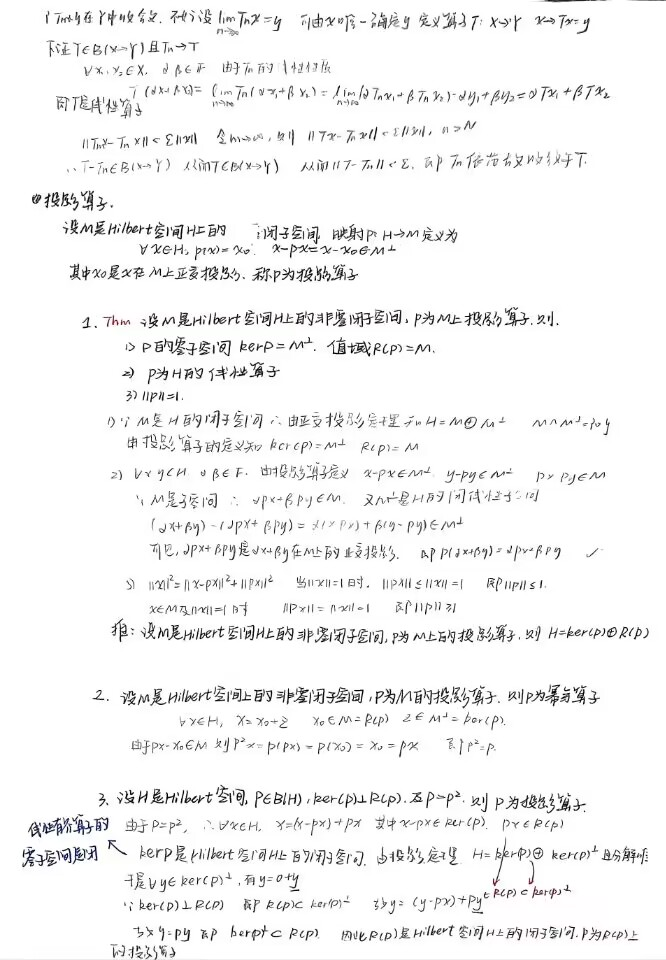 {Tnx}在Y中收敛, 不妨设 lim n→∞ Tnx=y 可由x唯一确定y 定义算子T: X→Y x→Tx=y
下证T∈B(X→Y) 且Tn→T
∀x₁,x₂∈X, α β∈F 由于Tn的线性性质
T(αx₁+βx₂)= lim n→∞ Tn(αx₁+βx₂)= lim n→∞(αTnx₁+βTnx₂)=αy₁+βy₂=αTx₁+βTx₂
因T是线性算子
||Tmx-Tnx||<ε||x|| 令m→∞, 则 ||Tx-Tnx||<ε||x||, n≥N
∴T-Tn∈B(X→Y) 从而T∈B(X→Y) 从而||T-Tn||<ε, 即Tn依范数收敛于T.
投影算子.
设M是Hilbert空间H上的 闭子空间, 映射P: H→M定义为
∀x∈H, P(x)=x₀. x-Px=x-x₀∈M⊥
其中x₀是x在M上正交投影, 称P为投影算子
1. Thm 设M是Hilbert空间H上的非零闭子空间, P为M上投影算子. 则.
1) P的零子空间 kerP=M⊥. 值域R(P)=M.
2) P为H的线性算子
3) ||P||=1.
1) ∵ M是H的闭子空间 ∴由正交投影定理知 H=M⊕M⊥ M∩M⊥={0}
由投影算子的定义知 ker(P)=M⊥ R(P)=M
2) ∀x y∈H. α β∈F. 由投影算子定义 x-Px∈M⊥ y-Py∈M⊥ Px Py∈M
∵ M是子空间 ∴ αPx+βPy∈M. 又M⊥是H的闭线性子空间
(αx+βy)-(αPx+βPy)=α(x-Px)+β(y-Py)∈M⊥
可见, αPx+βPy是αx+βy在M上的正交投影. 即P(αx+βy)=αPx+βPy ✓
3) ||x||²=||x-Px||²+||Px||² 当||x||=1时. ||Px||≤||x||=1 即||P||≤1.
x∈M及||x||=1时 ||Px||=||x||=1 即||P||≥1
推: 设M是Hilbert空间H上的非零闭子空间, P为M上的投影算子. 则 H=ker(P)⊕R(P)
2. 设M是Hilbert空间上的非零闭子空间, P为M的投影算子. 则P为幂等算子
∀x∈H, x=x₀+z x₀∈M=R(P) z∈M⊥=ker(P).
由于Px=x₀∈M 则P²x=P(Px)=P(x₀)=x₀=Px 即P²=P.
3. 设H是Hilbert空间, P∈B(H), ker(P)⊥R(P). 及P=P². 则 P为投影算子.
由于P=P², ∴∀x∈H, x=(x-Px)+Px 其中x-Px∈ker(P). Px∈R(P)
线性有界算子的
零子空间是闭
kerP是Hilbert空间H上的闭子空间. 由投影定理 H=ker(P)⊕ker(P)⊥ 且分解唯一
于是∀y∈ker(P)⊥, 有y=0+y
∵ker(P)⊥R(P) 即R(P)⊂ker(P)⊥ 故y=(y-Py)+Py ∈R(P)⊂ker(P)⊥
故y=Py 即 ker(P)⊥⊂R(P). 因此R(P)是Hilbert空间H上的闭子空间. P为R(P)上
的投影算子